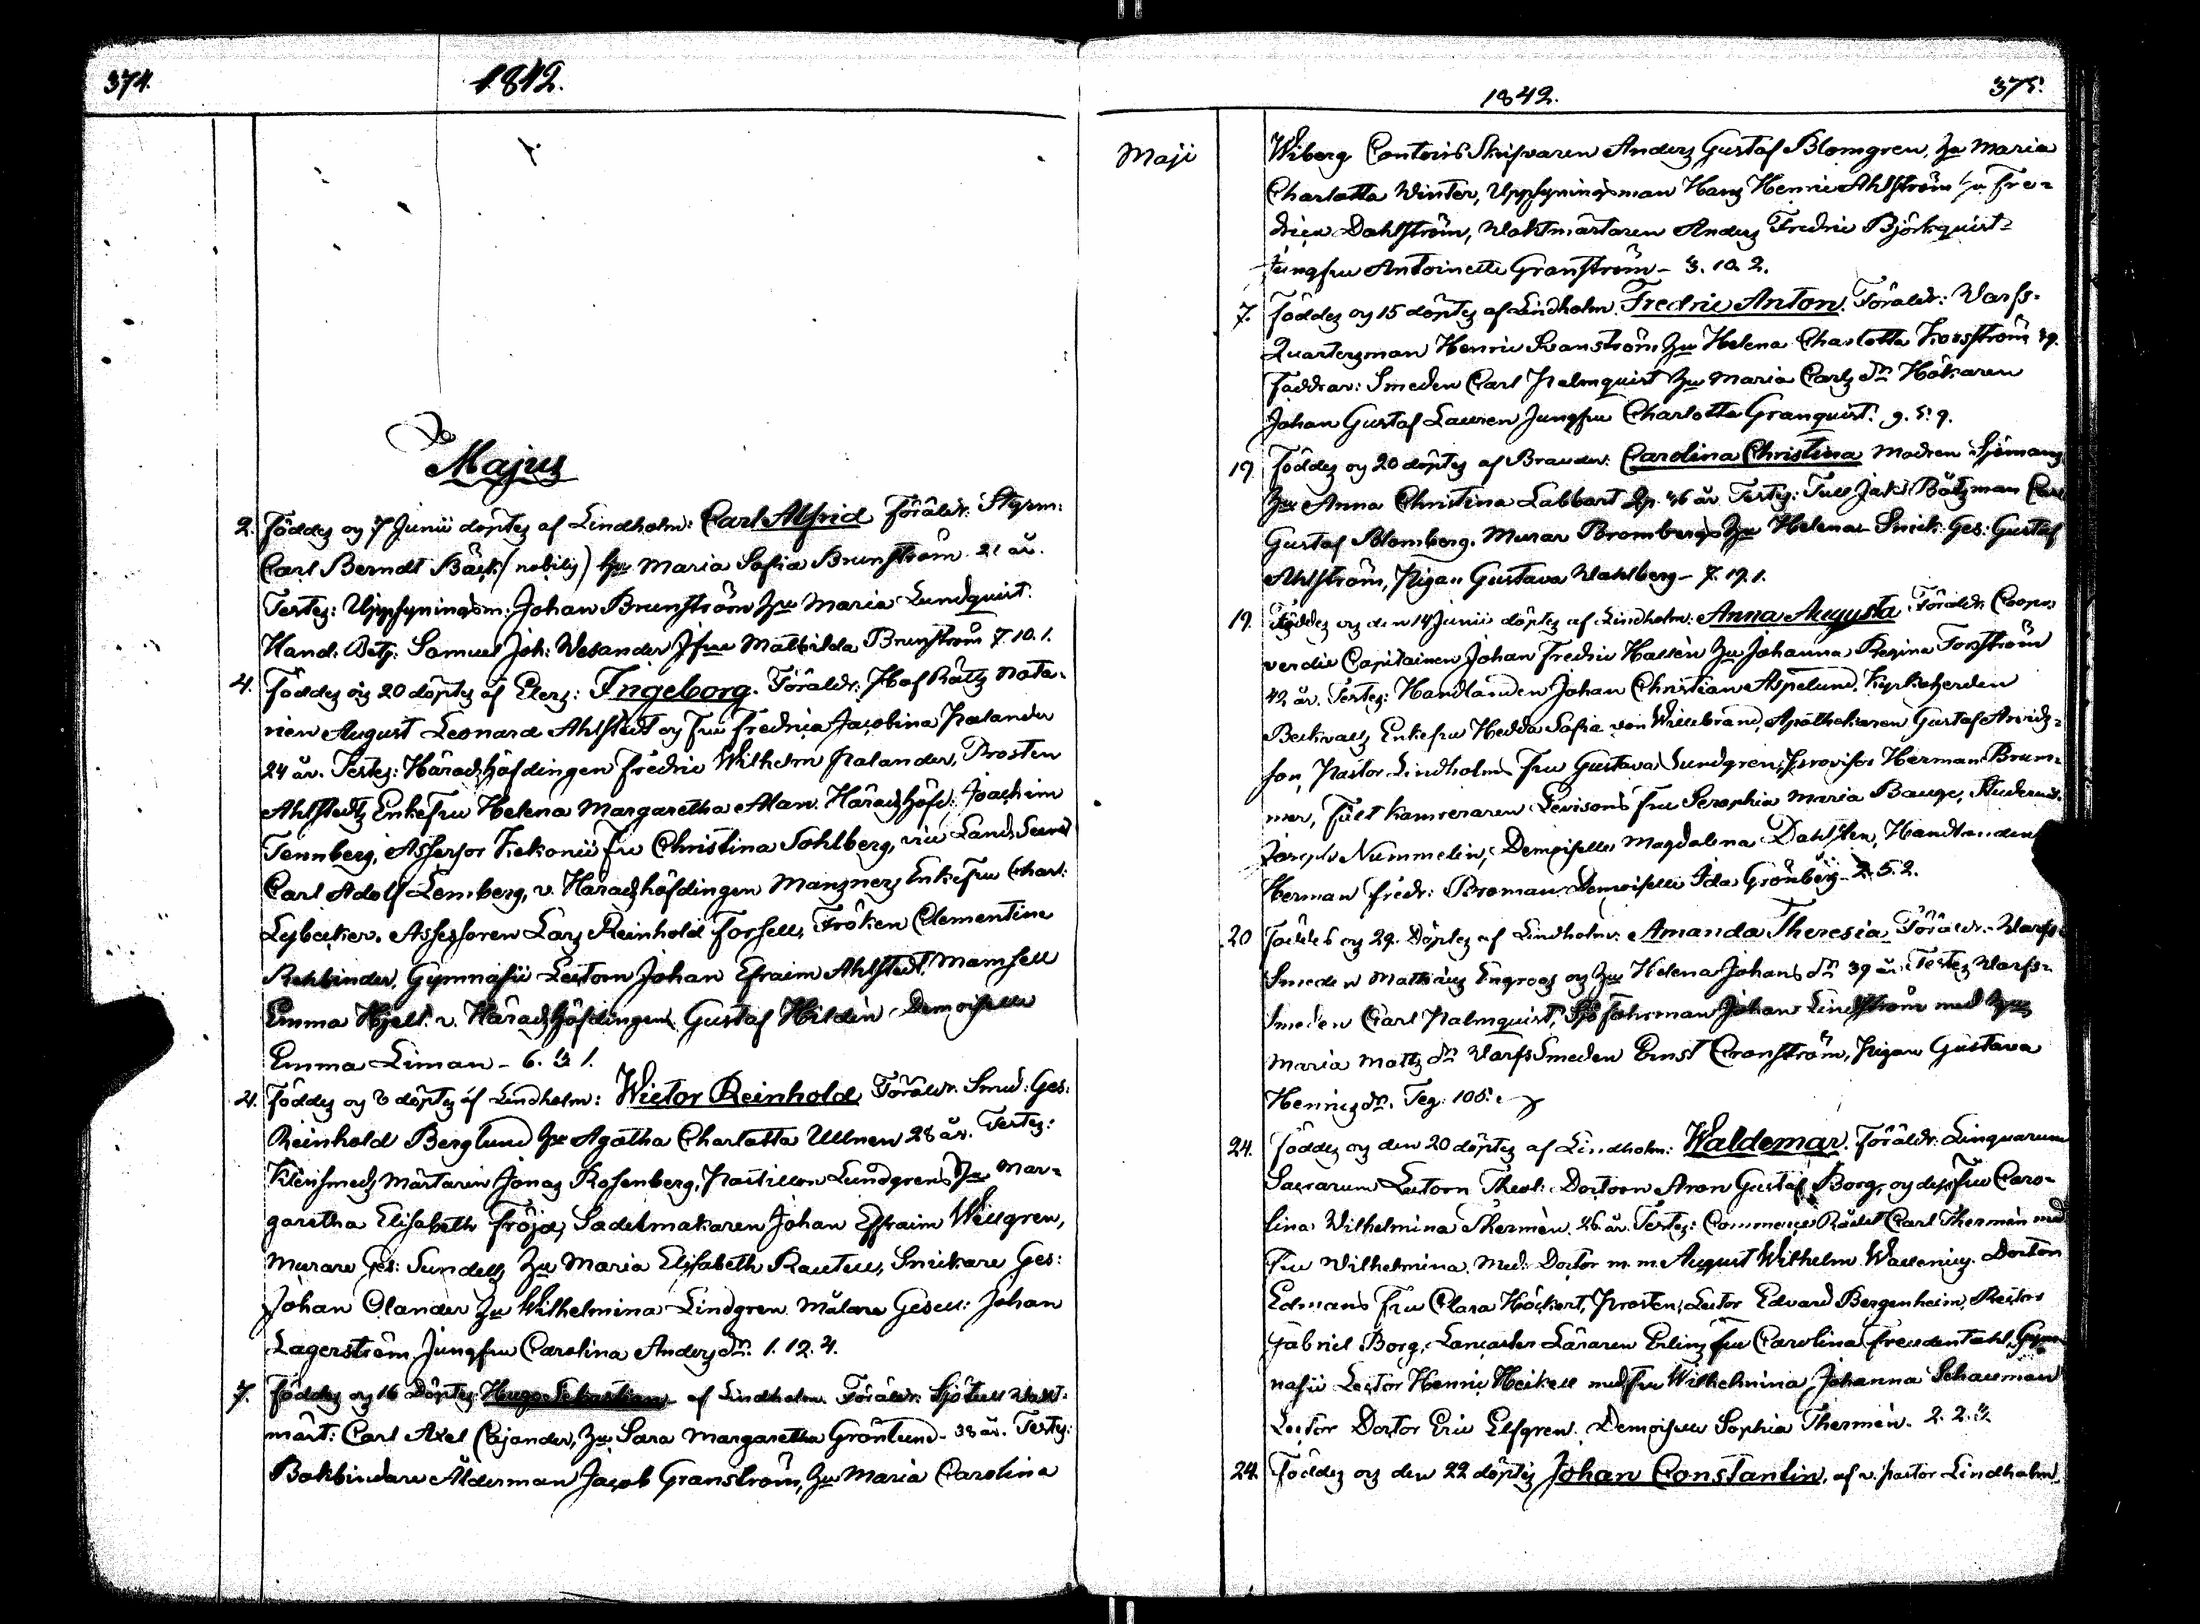 374.
1842.
Majus
2. Föddes og 7 Junii döptes af Lindholm: Carl Alfrid Föräldr: Styrm:
Carl Berndt Bäck (nobilis) hu Maria Sofia Brunström 21 år.
Testes: Uppsyningsm: Johan Brunström hu Maria Lundquist.
Hand: Betj: Samuel Joh: Welander Jfru Mathilda Brunström 7. 10. 1.
4. Föddes og 20 döptes af Elers: Ingeborg. Föräldr: Hof Rätts Nota-
rien August Leonard Ahlstedt og fru Fredrica Jacobina Palander
24 år. Testes: Häradshöfdingen Fredric Wilhelm Palander, Prosten
Ahlstedts Enkefru Helena Margaretha Alan. Häradshöfd: Joachim
Tennberg, Assessor Fru Christina Sohlberg, vice Lands Secret
Carl Adolf Lemberg, v. Häradshöfdingen Manzners Enkefru Charl:
Lybecker. Assessoren Lars Reinhold Forsell, Fröken Clementine
Rehbinder, Gymnasii Lectorn Johan Efraim Ahlstedt, Mamsell
Emma Hjelt. v. Häradshöfdingen Gustaf Hildén, Demoiselle
Emma Liman - 6. 13 1.
4. Föddes og 8 döptes af Lindholm: Wictor Reinhold Föräldr: Smed: Ges:
Reinhold Berglund hu Agatha Charlotta Ullnen 28 år. Testes:
Kleinsmeds Mästaren Jonas Rosenberg, Postillon Lundgrens hu Mar-
garetha Elisabeth Fröjd, Sadelmakaren Johan Effraim Wellgren,
Murare Ges: Sundells hu Maria Elisabeth Rautell, Snickare Ges:
Johan Olander hu Wilhelmina Lindgren Målare Gesell: Johan
Lagerström Jungfru Carolina Anders dr. 1. 12. 4.
7. Föddes og 16 Döptes Hugo Sebastian af Lindholm. Föräldr: Sjötull Vakt-
mäst: Carl Axel Cajander, hu Sara Margaretha Grönlund - 38 år. Testes:
Bokbindare Ålderman Jacob Granström, hu Maria Carolina
375.
1842.
Maji
Wiberg Contoris Skrifvaren Anders Gustaf Blomgren, hu Maria
Charlotta Winter, Uppsyningsman Hans Henric Ahlström hu Fre-
drica Dahlström, Vaktmästaren Anders Fredric Björkquist
Jungfru Antoinette Granström - 3. 10. 2.
7. Föddes og 15 döptes af Lindholm. Fredric Anton. Föräldr: Varfs-
Quartersman Henric Svanström hu Helena Charlotta Forsström 39.
Faddrar: Smeden Carl Palmquist hu Maria Carls dr Hökaren
Johan Gustaf Lauren Jungfru Charlotta Granquist. 9. 5. 9.
19 Föddes og 20 döptes af Brander: Carolina Christina Modren Sjömans
hu Anna Christina Labbart 36 år Testes: Tull Jakt Båtsman Carl
Gustaf Blomberg, Murar Brombergs hu Helena Snick: Ges: Gustaf
Ahlström, Pigan Gustava Wahlberg - 7. 19. 1.
19. Föddes og den 14 Junii döptes af Lindholm: Anna Augusta Föräldr: Coopv
verdie Capitainen Johan Fredric Hallén hu Johanna Regina Forsström
42 år. Testes: Handlanden Johan Christian Aspelund, Kyrkoherden
Enkefru Hedda Sofia von Willebrand, Apothekaren Gustaf Arvids-
son, Pastor Lindholms Fru Gustava Sundgren, Provisor Herman Brum-
mer, Fält Kamreraren Levisons Fru Seraphia Maria Bange, Studeren-
Joseph Nummelin, Demoiselle Magdalena Dahlsten, Handlanden
Herman Fredr: Broman Demoiselle Ida Grönberg 2. 5. 2.
20 Föddes og 29. Döptes af Lindholm: Amanda Theresia Föräldr: Varfs-
Smeden Mathias Engroos og hu Helena Johans dr 39 år. Testes Varfs-
Smeden Carl Palmquist, Sjöfahrman Johan Lindström med hu
Maria Matts dr Varfs Smeden Ernst Cronström, Pigan Gustava
Henrics dr. Teg. 105.
24. Föddes og den 20 döptes af Lindholm: Waldemar. Föräldr: Linguarum
Sacrarum Lectorn Theol: Doctorn Aron Gustaf Borg, og dess Fru Caro-
lina Wilhelmina Thermén. 26 år. Testes: Commerce Rådet Carl Thermén med
Fru Wilhelmina. Med: Doctor m. m. August Wilhelm Wallenius. Doctor
Edmans Fru Clara Höckert, Prosten, Lector Edvard Bergenheim, Rector
Gabriel Borg, Lancaster Läraren Erlins fru Carolina Freudenthal, Gym-
nasii Lector Henric Heikell med fru Wilhelmina Johanna Schauman
Lector Doctor Eric Elfgren. Demoiselle Sophia Thermén. 2. 2. 2
24. Föddes og den 22 döptes Johan Constantin, af v. pastor Lindholm,